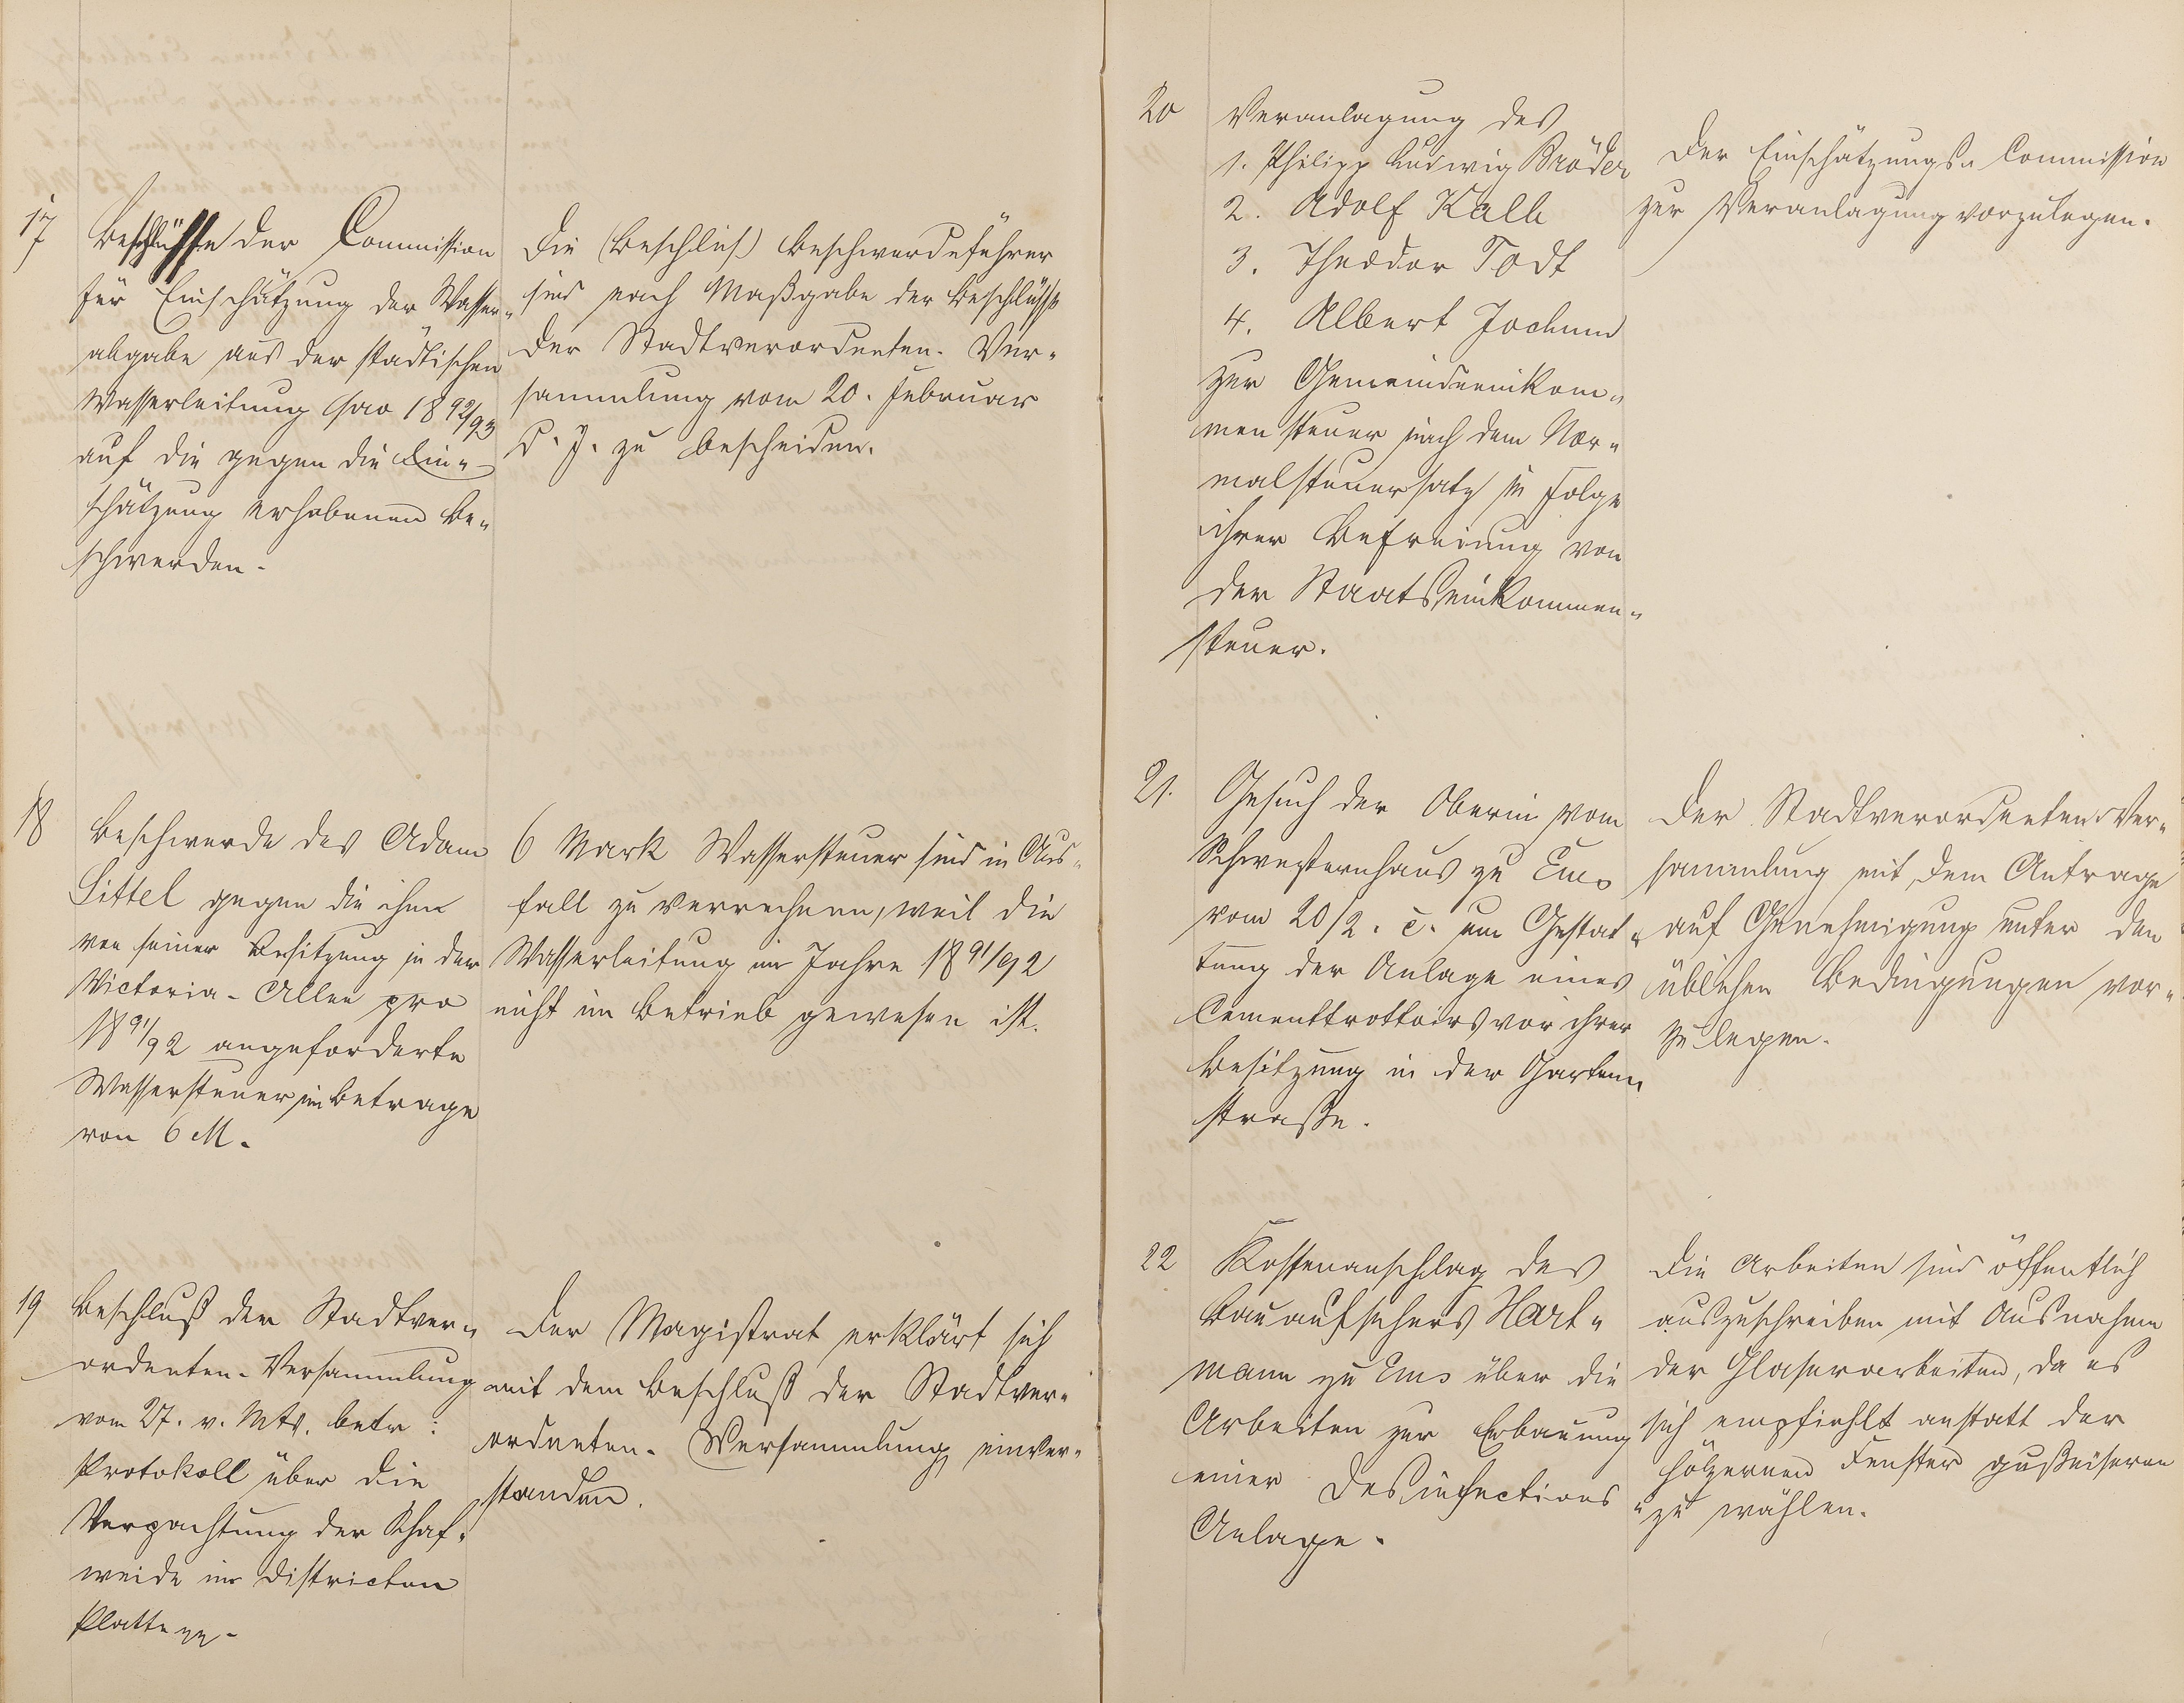 17
Beschlüsse der Commission
für Einschätzung der Wasser-
abgabe aus der städtischen
Wasserleitung pro 1892/93
auf die gegen die Ein-
schätzung erhobenen Be-
schwerden.
Die (Beschlüs) Beschwerdeführer
sind nach Maßgabe der Beschlüsse
der Stadtverordneten-Ver-
sammlung vom 20. Februar
d. J. zu bescheiden.
18
Beschwerde des Adam
Sittel gegen die ihm
von seiner Besitzung in der
Victoria-Allee pro
1891/92 angeforderte
Wassersteuer im Betrage
von 6 M.
6 Mark Wassersteuer sind in Aus-
fall zu verrechnen, weil die
Wasserleitung im Jahre 1891/92
nicht im Betrieb gewesen ist.
19
Beschluß der Stadtver-
ordneten-Versammlung
vom 27. v. Mts. betr:
Protokoll über die
Verpachtung der Schaf-
weide im Districten
Platte
Der Magistrat erklärt sich
mit dem Beschluß der Stadtver-
ordneten-Versammlung einver-
standen.
20
Veranlagung des
1. Philipp Ludwig Bröder
2. Adolf Kalb
3. Theodor Todt
4. Albert Jochum
zur Gemeindeeinkom-
mensteuer nach dem Nor-
malsteuersatz in Folge
ihrer Befreiung von
der Staatseinkommen-
steuer.
Der Einschätzungs-Commission
zur Veranlagung vorzulegen.
21.
Gesuch der Oberin vom
Schwesternhaus zu Ems
vom 20/2. c. um Gestat-
tung der Anlage eines
Cementtrottoirs vor ihrer
Besitzung in der Garten-
straße.
Der Stadtverordneten-Ver-
sammlung mit dem Antrage
auf Genehmigung unter den
üblichen Bedingungen vor-
zulegen.
22
Kostenanschlag des
Bauaufsehers Hart-
mann zu Ems über die
Arbeiten zur Erbauung
einer Desinfections-
Anlage.
Die Arbeiten sind öffentlich
auszuschreiben mit Ausnahme
der Glaserarbeiten, da es
sich empfiehlt anstatt der
hölzernen Fenster gußeiserne
zu wählen.